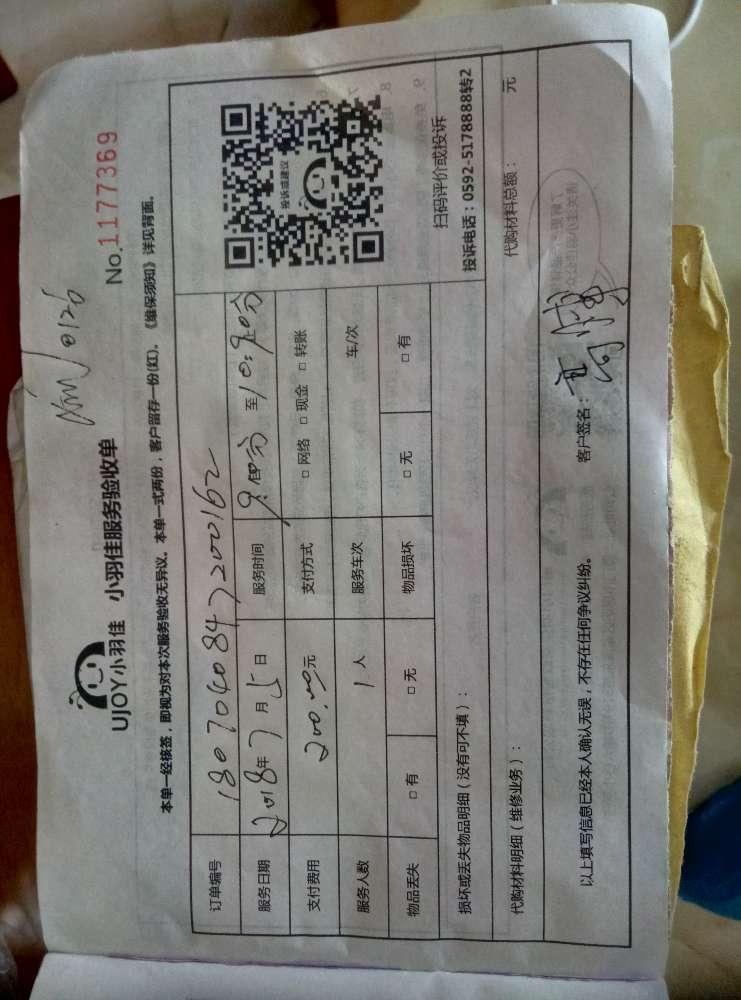 UJOY小羽佳 小羽佳服务验收单
0126
No.1177369
本单一经核签，即视为对本次服务验收无异议。本单一式两份，客户留存一份(红)。《维保须知》详见背面。
订单编号 1807040847200162
服务日期 2018年7月5日 服务时间 9:00分 至 10:20分
支付费用 200.00元 支付方式 □ 网络 □ 现金 □ 转账
服务人数 1 人 服务车次 车/次
物品丢失 □ 有 □ 无 物品损坏 □ 无 □ 有
投诉或建议
扫码评价或投诉
投诉电话：0592-5178888转2
损坏或丢失物品明细（没有可不填）：
代购材料明细（维修业务）： 代购材料总额： 元
以上填写信息已经本人确认无误，不存在任何争议纠纷。 客户签名：